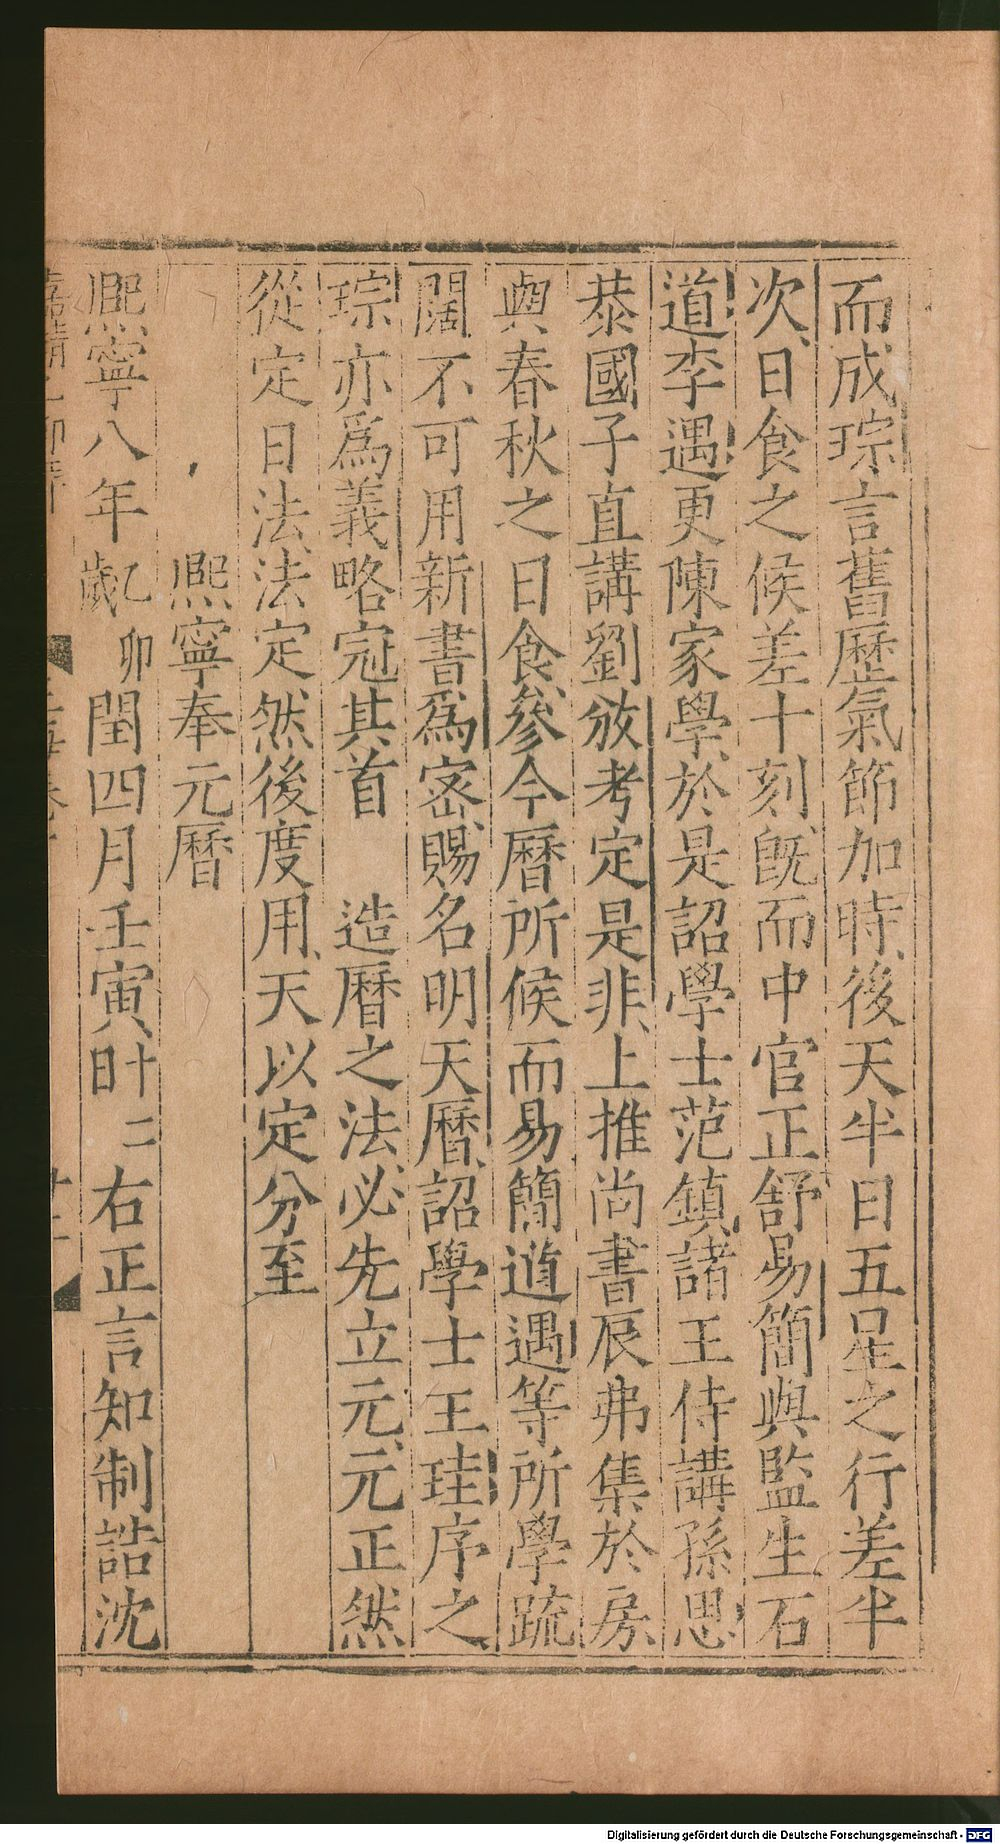 而成琮言舊歷氣節加時後天半日五星之行差半
次日食之候差十刻旣而中官正舒易簡與監生石
道李遘更陳家學於是詔學士范鎮諸王侍講孫思
恭國子直講劉攽考定是非上推尚書辰弗集於房
與春秋之日食參今曆所候而易簡道遘等所學疏
闊不可用新書爲密賜名明天曆詔學士王珪序之
琮亦爲義略冠其首　造曆之法必先立元元正然
從定日法法定然後度用天以定分至
熙寧奉元曆
熙寧八年乙卯歲閏四月壬寅旪二右正言知制誥沈
Digitalisierung gefördert durch die Deutsche Forschungsgemeinschaft - DFG